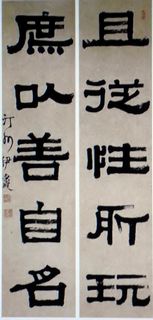 且從性所玩
庶以善自名
汀州伊